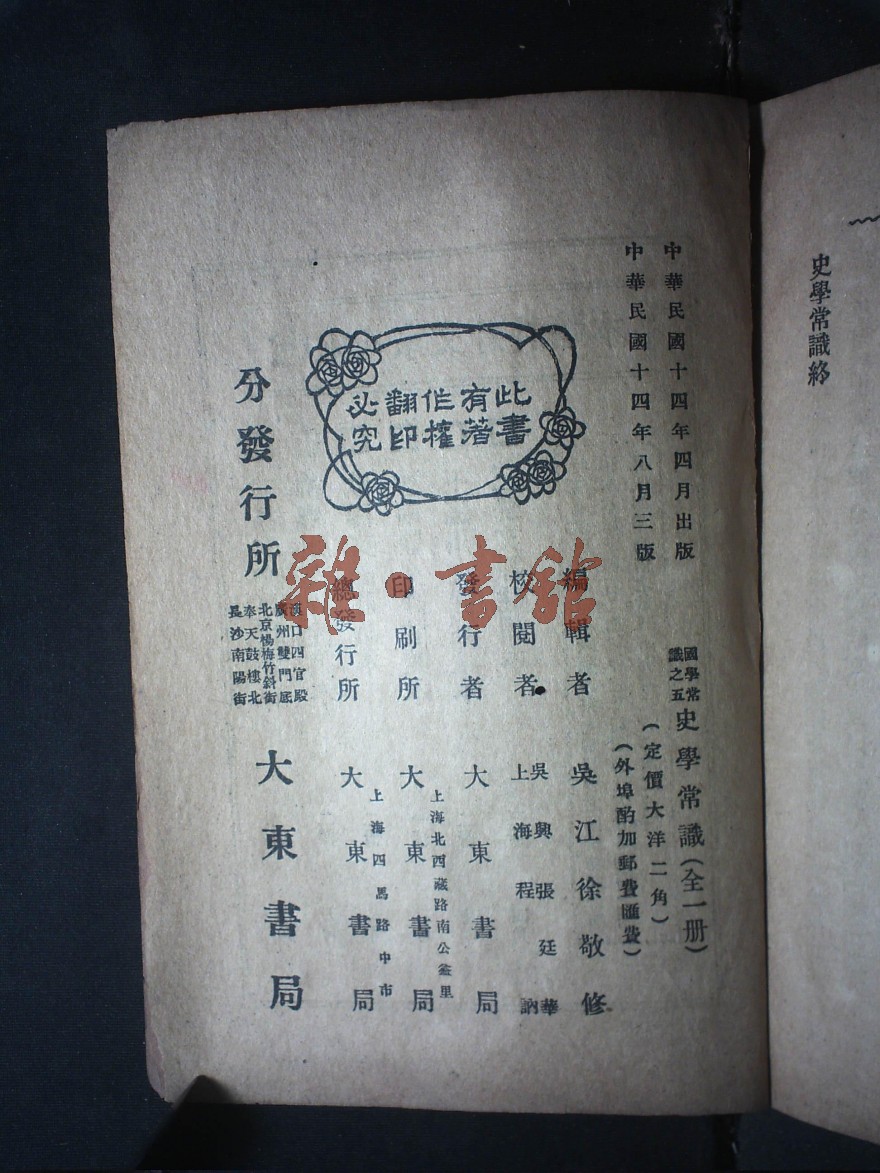 史學常識終
中華民國十四年四月出版
中華民國十四年八月三版
國學常識之五
史學常識(全一册)
(定價大洋二角)
(外埠酌加郵費匯費)
編輯者 吳江徐敬修
校閱者 吳興張廷華 上海程訥
發行者 大東書局
印刷所 上海北西藏路南公益里 大東書局
總發行所 上海四馬路中市 大東書局
分發行所
漢口四官殿
廣州雙門底
北京楊梅竹斜街
奉天鼓樓北
長沙南陽街
大東書局
此書
有著
作權
翻印
必究
雜·書館